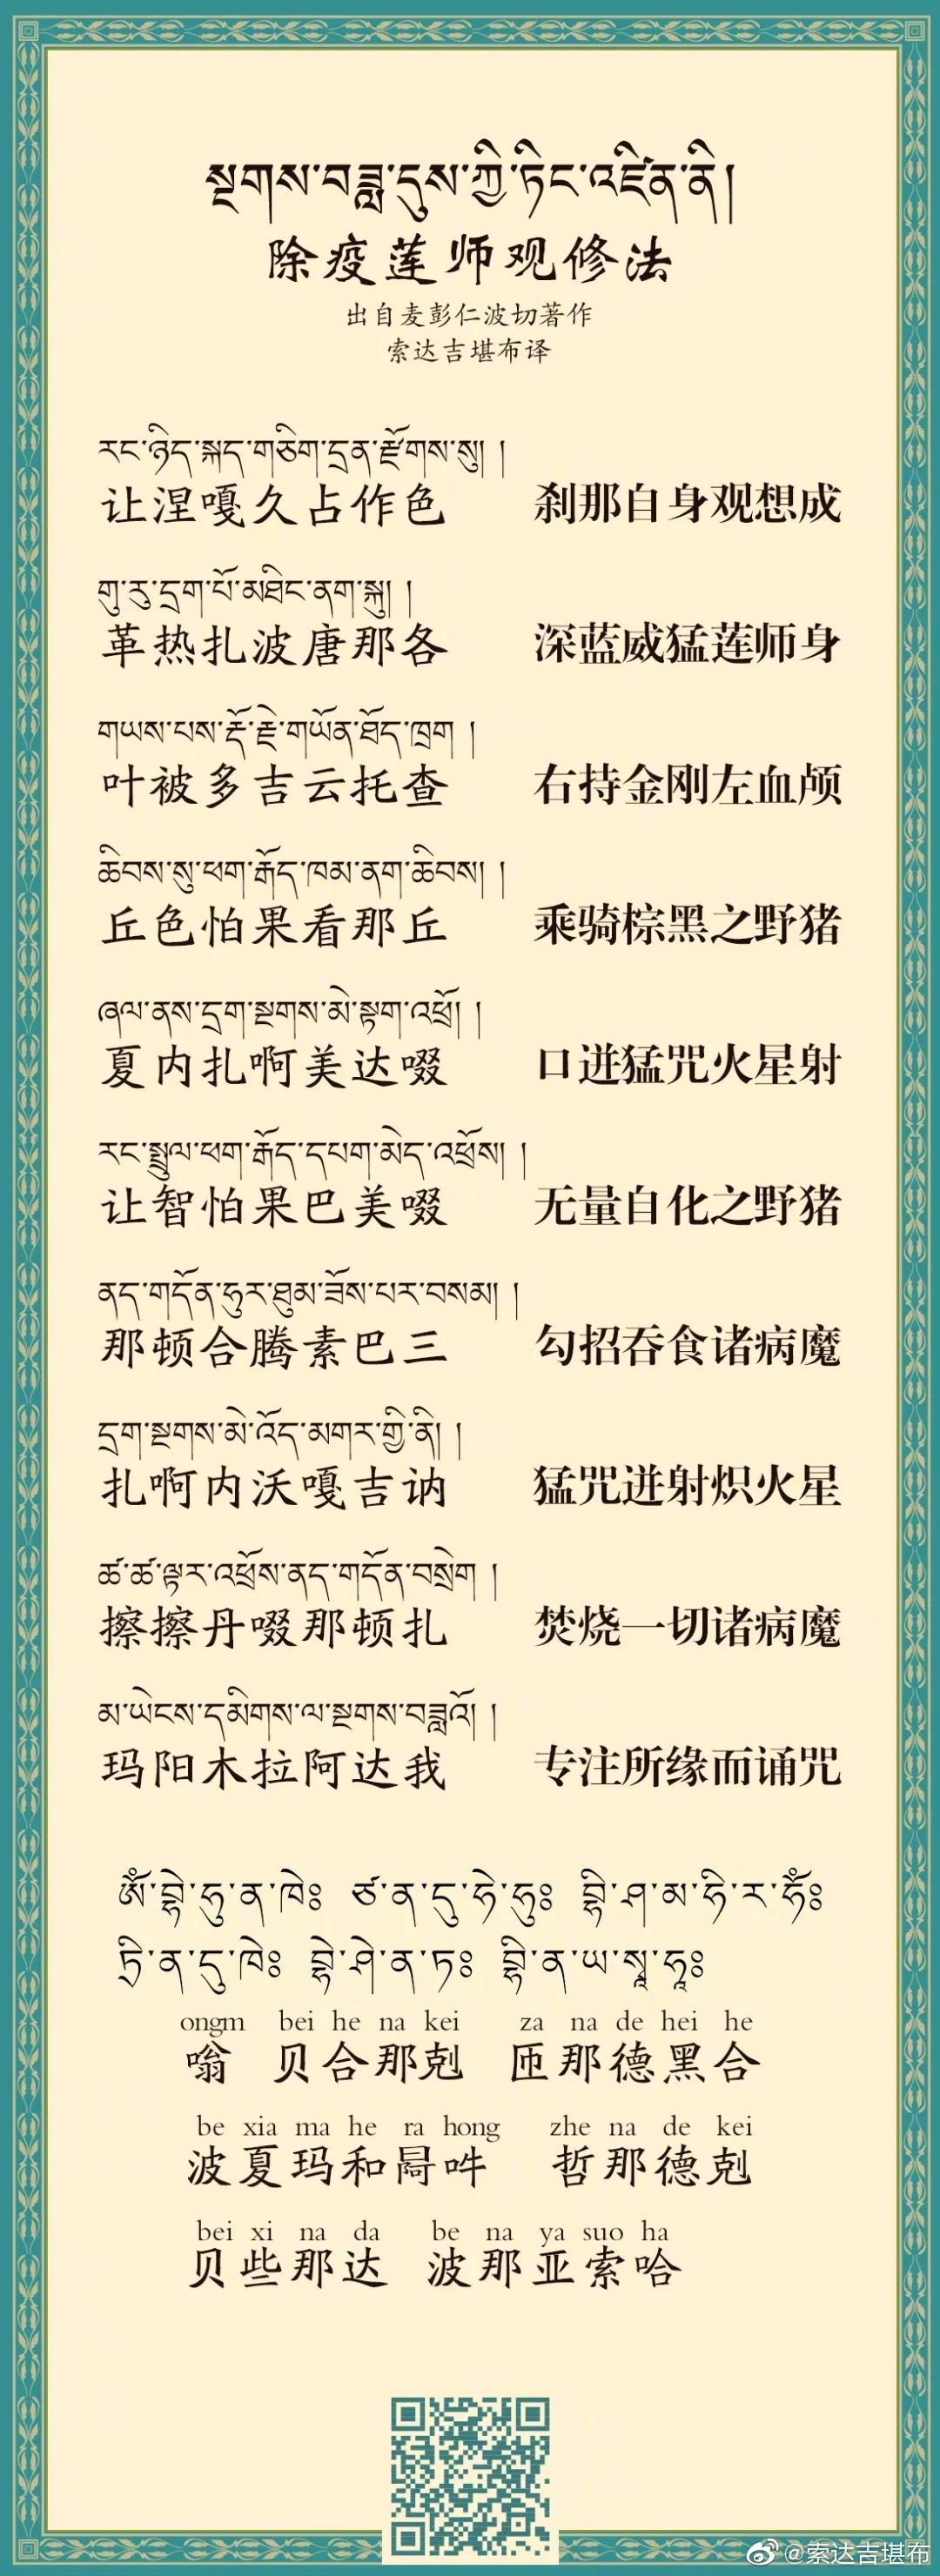 སྔགས་བཟླ་དུས་ཀྱི་ཏིང་འཛིན་ནི།
除疫莲师观修法
出自麦彭仁波切著作
索达吉堪布译
རང་ཉིད་སྐད་གཅིག་དྲན་རྫོགས་སུ། །
让涅嘎久占作色 刹那自身观想成
གུ་རུ་དྲག་པོ་མཐིང་ནག་སྐུ། །
革热扎波唐那各 深蓝威猛莲师身
གཡས་པས་རྡོ་རྗེ་གཡོན་ཐོད་ཁྲག །
叶被多吉云托查 右持金刚左血颅
ཆིབས་སུ་ཕག་རྒོད་ཁམ་ནག་ཆིབས། །
丘色怕果看那丘 乘骑棕黑之野猪
ཞལ་ནས་དྲག་སྔགས་མེ་སྟག་འཕྲོ། །
夏内扎啊美达啜 口迸猛咒火星射
རང་སྤྲུལ་ཕག་རྒོད་དཔག་མེད་འཕྲོས། །
让智怕果巴美啜 无量自化之野猪
ནད་གདོན་ཧུར་ཐུམ་ཟོས་པར་བསམ། །
那顿合腾素巴三 勾招吞食诸病魔
དྲག་སྔགས་མེ་འོད་མགར་གྱི་ནི། །
扎啊内沃嘎吉讷 猛咒迸射炽火星
ཚ་ཚ་ལྟར་འཕྲོས་ནད་གདོན་བསྲེག །
擦擦丹啜那顿扎 焚烧一切诸病魔
མ་ཡེངས་དམིགས་ལ་སྔགས་བཟླའོ། །
玛阳木拉阿达我 专注所缘而诵咒
ཨོཾ་བྷེ་ཧུ་ན་ཁེ༔ ཙ་ན་དུ་ཧེ་ཧུ༔ བྷི་ཤ་མ་ཧི་ར་ཧཾ༔
ཏྲི་ན་དུ་ཁེ༔ བྷེ་ཤེ་ན་ཏ༔ བྷི་ན་ཡ་སྭཱ་ཧཱ༔
ongm bei he na kei za na de hei he
嗡 贝合那剋 匝那德黑合
be xia ma he ra hong zhe na de kei
波夏玛和吽 哲那德剋
bei xi na da be na ya suo ha
贝些那达 波那亚索哈
@索达吉堪布